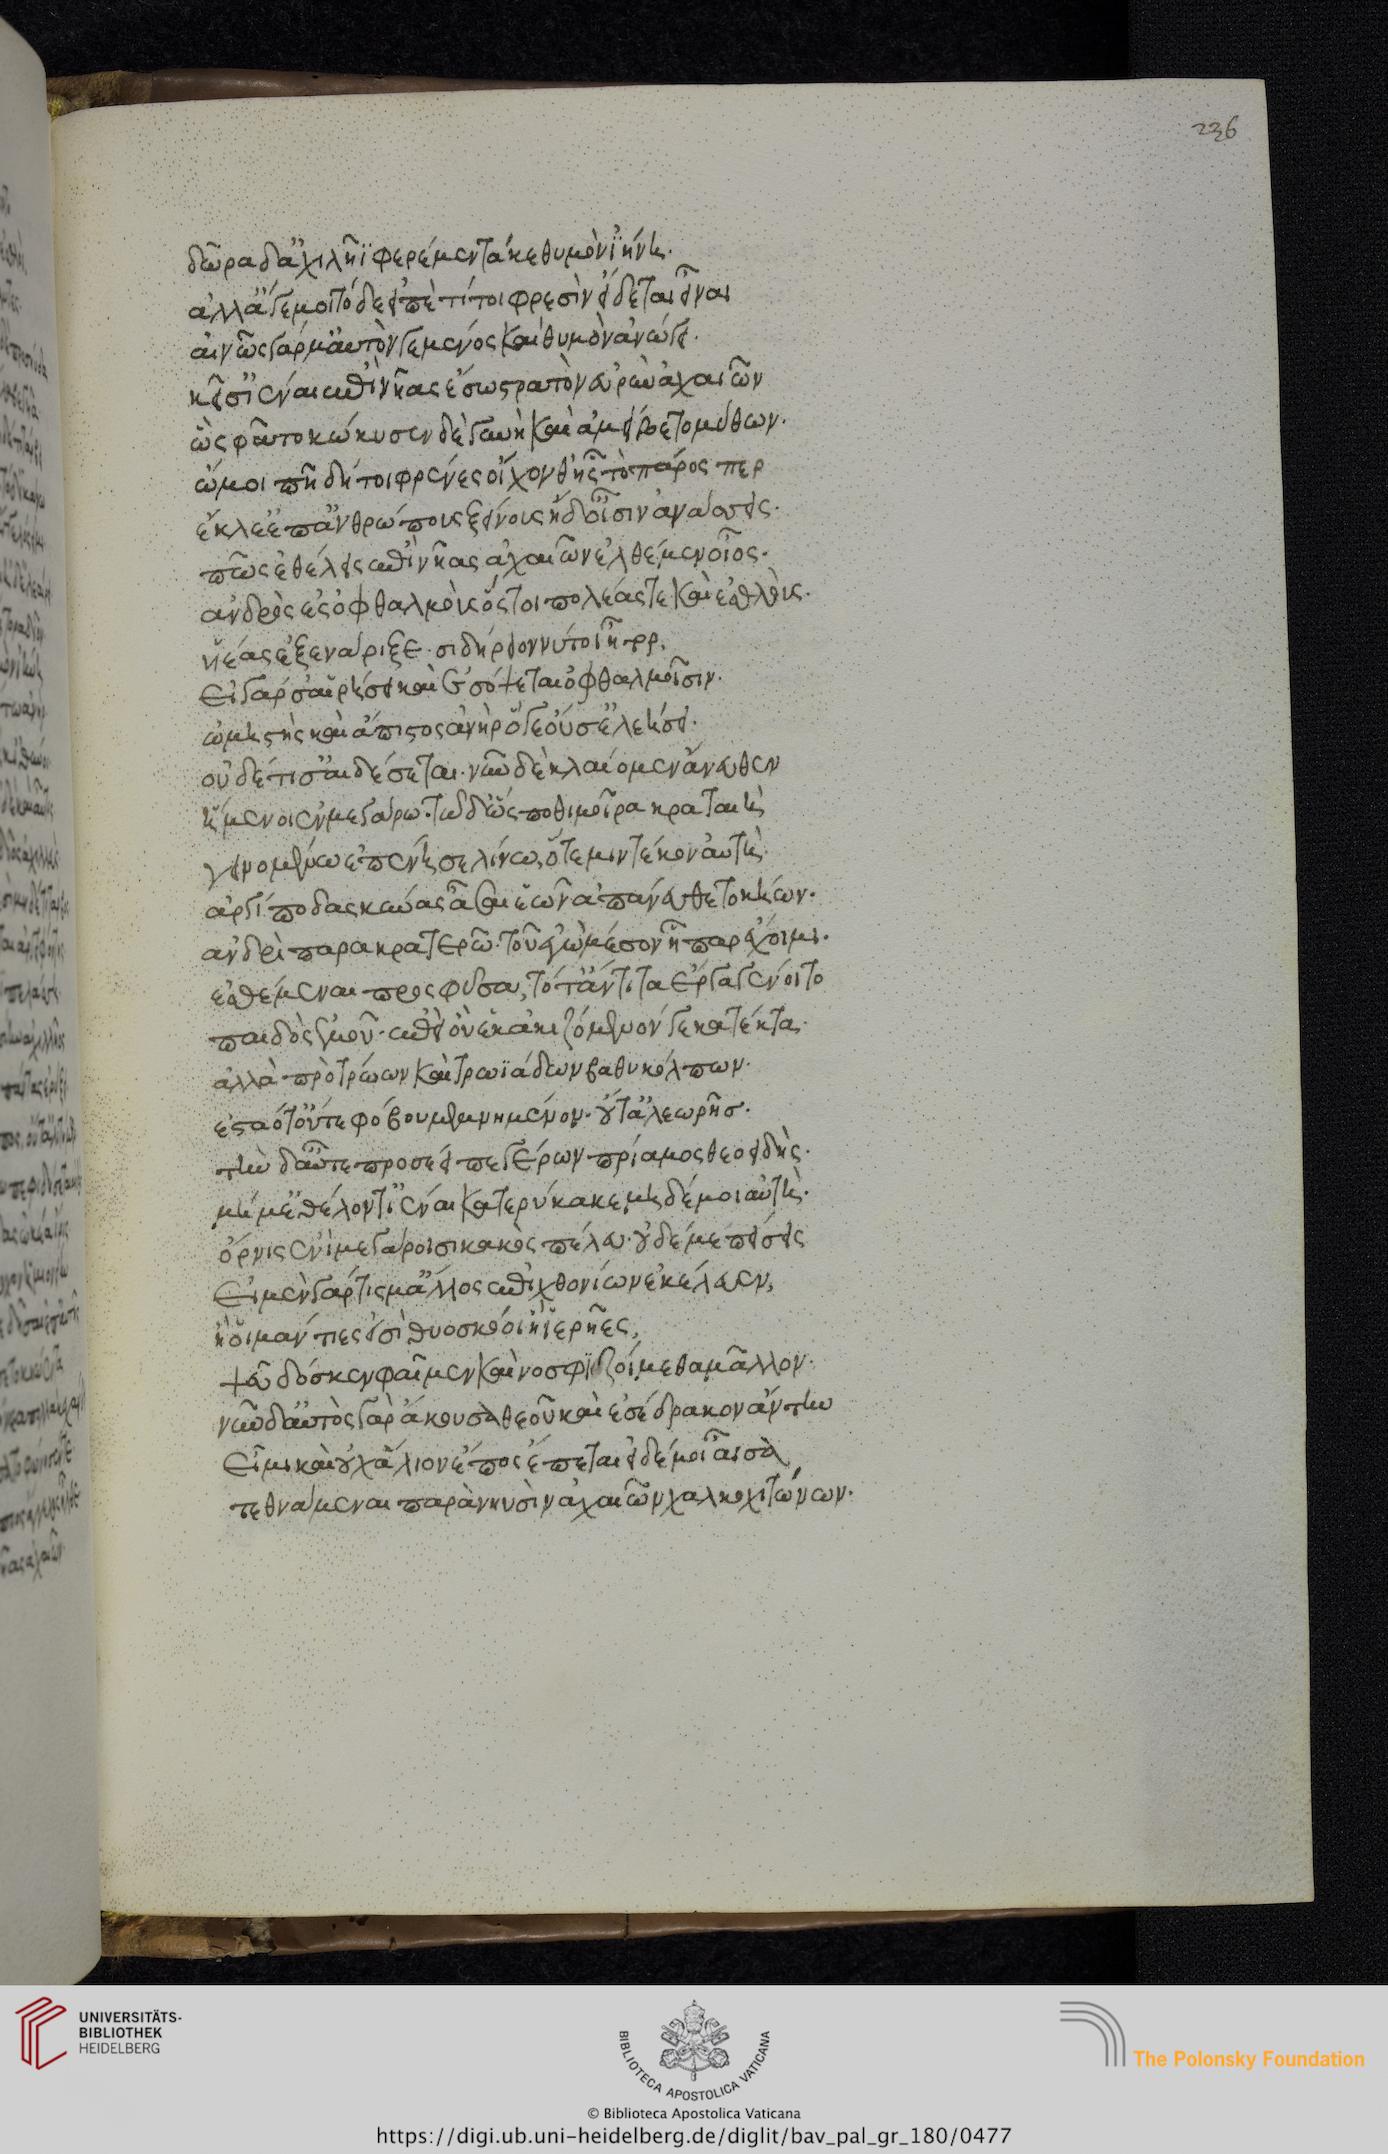 236
δῶρα δ' ἀχιλῆϊ φερέμεν τά κε θυμὸν ἰήνῃ.
ἀλλ' ἄγε μοι τόδε εἰπὲ τί τοι φρεσὶν εἴδεται εἶναι
αἰνῶς γάρ μ' αὐτόν γε μένος καὶ θυμὸν ἀνώγει.
κεῖσ' ἰέναι ἐπὶ νῆας ἔσω στρατὸν εὐρὺν ἀχαιῶν
ὣς φάτο κώκυσεν δὲ γυνὴ καὶ ἀμείβετο μύθων.
ὤμοι πῆ δή τοι φρένες οἴχονθ' ᾗς τὸ πάρος περ
ἔκλε' ἐπ' ἀνθρώπους ξείνους ἠδ' οἷσιν ἀνάσσεις.
πῶς ἐθέλεις ἐπὶ νῆας ἀχαιῶν ἐλθέμεν οἶος.
ἀνδρὸς ἐς ὀφθαλμοὺς ὅς τοι πολέας τε καὶ ἐσθλοὺς.
υἱέας ἐξενάριξε. σιδήρειόν νύ τοι ἦτορ.
εἰ γάρ σ' αἱρήσει καὶ ἐσόψεται ὀφθαλμοῖσιν.
ὠμηστὴς καὶ ἄπιστος ἀνὴρ ὅγε οὔ σ' ἐλεήσει.
οὐδέ τί σ' αἰδέσεται. νῦν δὲ κλαίομεν ἄνευθεν
ἥμενοι ἐν μεγάρω. τῶ δ' ὥς ποθι μοῖρα κραταιὴ
γεινομένω ἐπένησε λίνω, ὅτε μιν τέκον αὐτὴ.
ἀργίποδας κύνας ἆσαι ἑῶν ἀπάνευθε τοκήων.
ἀνδρὶ παρα κρατερῶ. τοῦ ἐγὼ μέσον ἧπαρ ἔχοιμι.
ἐσθέμεναι προσφῦσα, τότ' ἄντιτα ἔργα γένοιτο
παιδὸς ἐμοῦ. ἐπεὶ οὔ ἑ κακιζόμενόν γε κατέκτα.
ἀλλὰ πρὸ τρώων καὶ τρωϊάδων βαθυκόλπων.
ἑσταότ' οὔτε φόβου μεμνημένον. οὔτ' ἀλεωρῆσ.
τὴν δ' αὖτε προσέειπε γέρων πρίαμος θεοειδὴς.
μή μ' ἐθέλοντ' ἰέναι κατερύκακε, μὴ δέ μοι αὐτὴ.
ὄρνις ἐνὶ μεγάροισι κακὸς πέλευ. οὐδέ με πείσεις
εἰ μὲν γάρ τις μ' ἄλλος ἐπιχθονίων ἐκέλευεν,
ἢ οἳ μάντιές εἰσὶ θυοσκόοι ἢ ἱερῆες,
ψεῦδός κεν φαῖμεν καὶ νοσφιζοίμεθα μᾶλλον.
νῦν δ' αὐτὸς γὰρ ἄκουσα θεοῦ καὶ ἐσέδρακον ἄντην
εἶμι καὶ οὐχ ἅλιον ἔπος ἔσεται εἰ δέ μοι αἶσα
τεθνάμεναι παρὰ νηυσὶν ἀχαιῶν χαλκοχιτώνων.
UNIVERSITÄTS-
BIBLIOTHEK
HEIDELBERG
BIBLIOTECA APOSTOLICA VATICANA
The Polonsky Foundation
© Biblioteca Apostolica Vaticana
https://digi.ub.uni-heidelberg.de/diglit/bav_pal_gr_180/0477